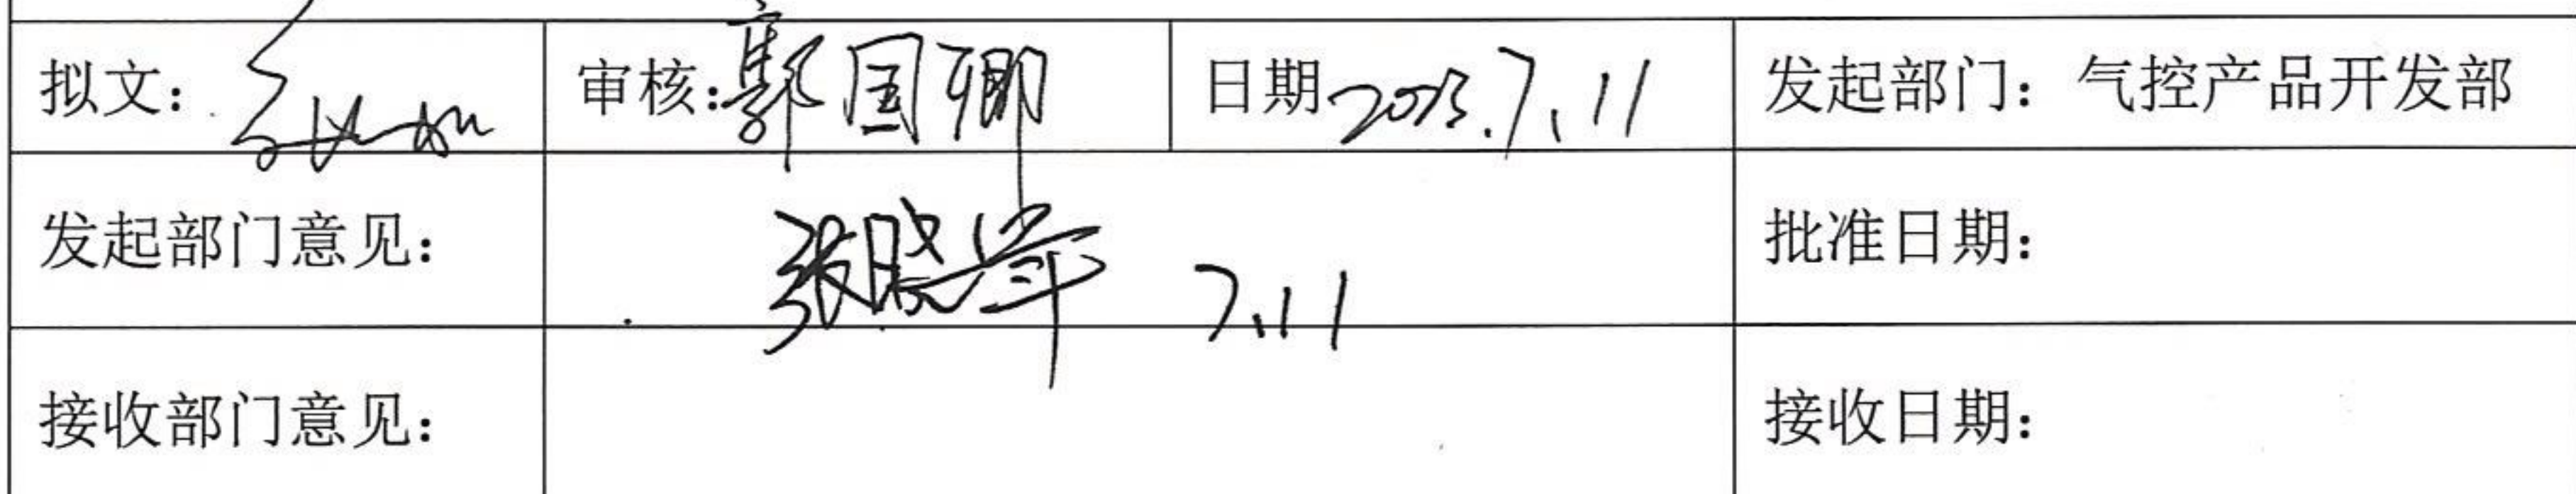 拟文: 审核: 郭国卿 日期 2023.7.11 发起部门: 气控产品开发部
发起部门意见: 张晓 7.11 批准日期:
接收部门意见: 接收日期: